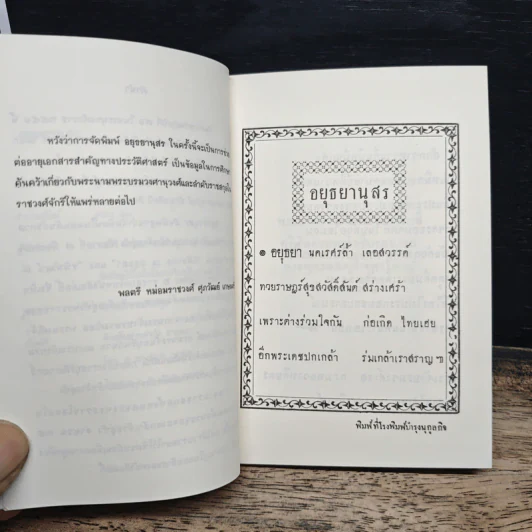 หวังว่าการจัดพิมพ์ อยุธยานุสร ในครั้งนี้จะเป็นการช่วย
ต่ออายุเอกสารสำคัญทางประวัติศาสตร์ เป็นข้อมูลในการศึกษา
ค้นคว้าเกี่ยวกับพระนามพระบรมวงศานุวงศ์และลำดับราชสกุลใน
ราชวงศ์จักรีให้แพร่หลายต่อไป
พลตรี หม่อมราชวงศ์ ศุภวัฒย์
อยุธยานุสร
๏ อยุธยา นคเรศร์ล้ำ เลอสวรรค์
ทวยราษฎร์สุขสวัสดิ์สันต์ สร่างเศร้า
เพราะต่างร่วมใจกัน ก่อเกิด ไทยเฮย
อีกพระเดชปกเกล้า ร่มเกล้าเราสราญ ฯ
พิมพ์ที่โรงพิมพ์บำรุงนุกูลกิจ